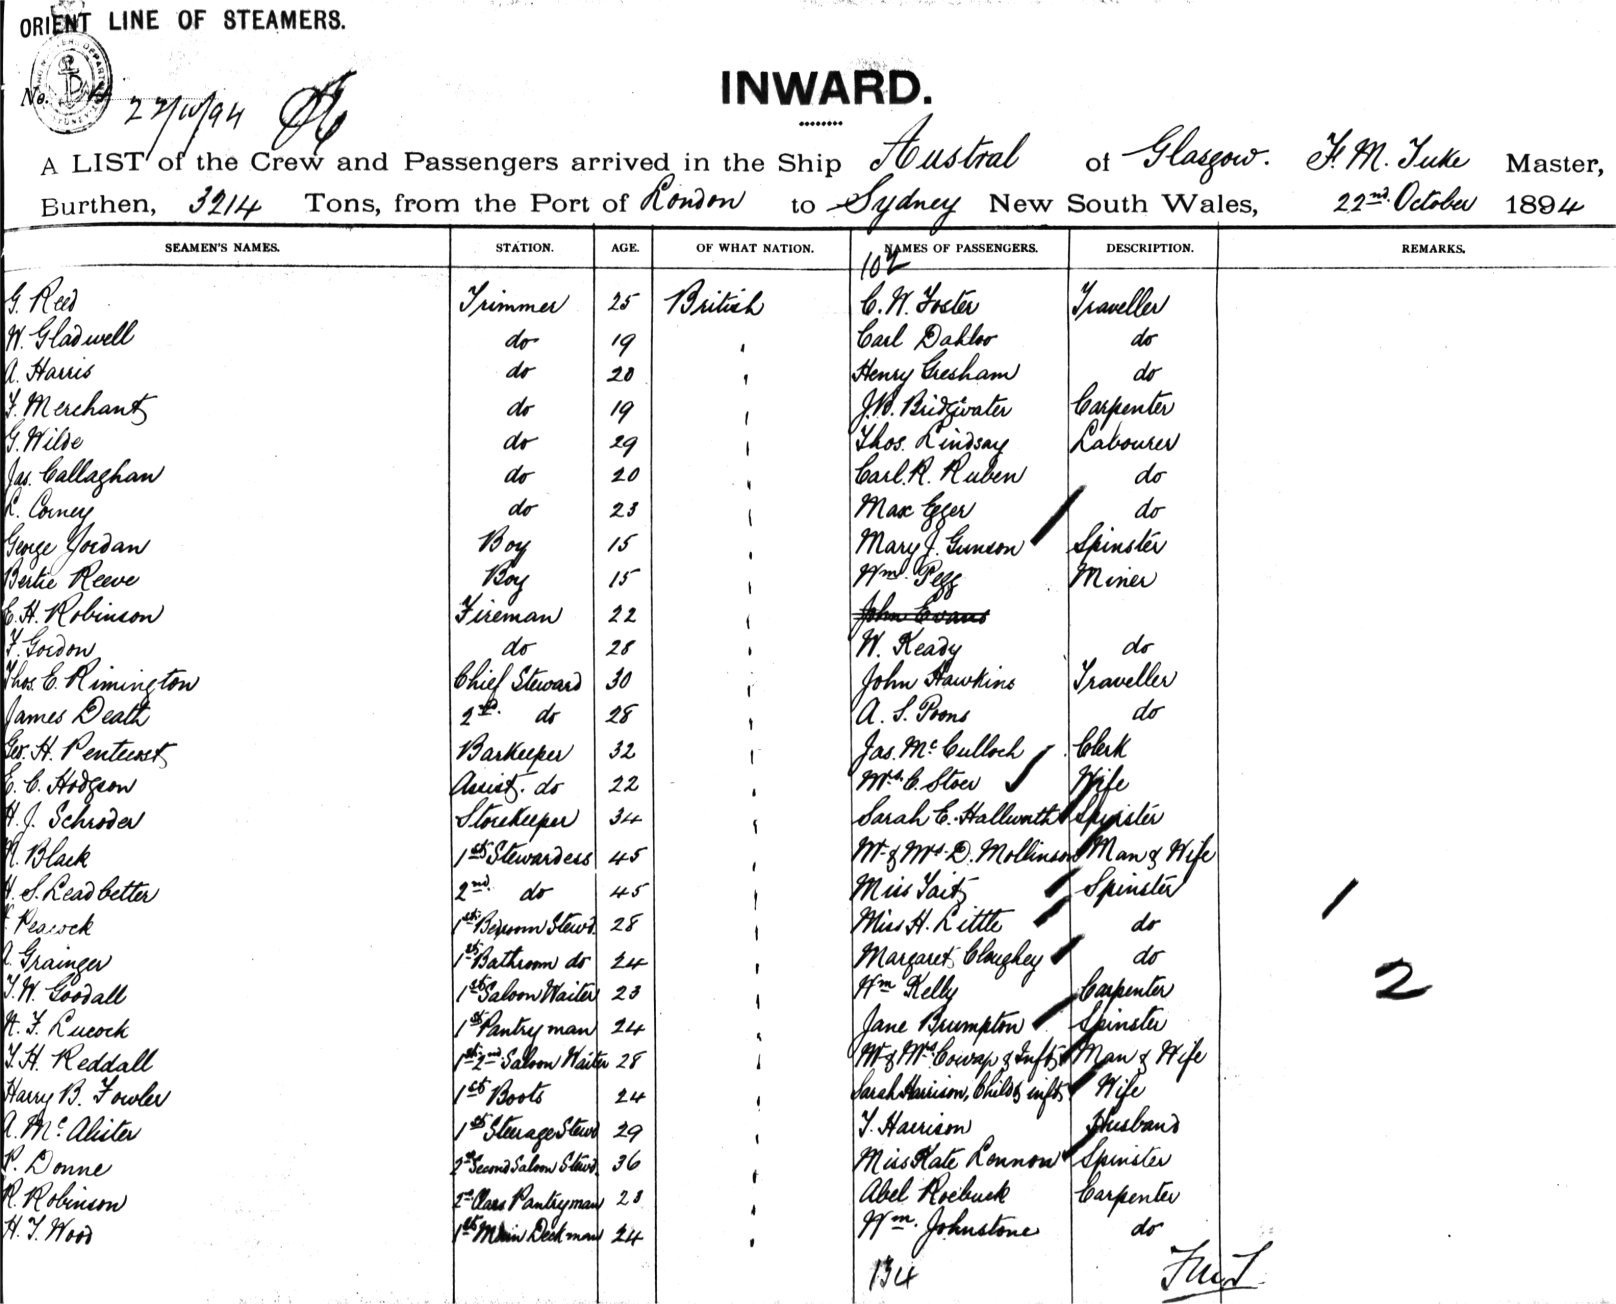 ORIENT LINE OF STEAMERS.
No. 22/10/94
INWARD.
A LIST of the Crew and Passengers arrived in the Ship Austral of Glasgow. F. M. Tuke Master,
Burthen, 3214 Tons, from the Port of London to Sydney New South Wales, 22nd October 1894
SEAMEN'S NAMES. STATION. AGE. OF WHAT NATION. NAMES OF PASSENGERS. DESCRIPTION. REMARKS.
107
G. Reed Trimmer 25 British C. W. Foster Traveller
W. Gladwell do 19 " Carl Dahloo do
A. Harris do 20 " Henry Gresham do
F. Merchant do 19 " J. B. Bridgwater Carpenter
G. Wilde do 29 " Thos. Lindsay Labourer
Jas. Callaghan do 20 " Carl. R. Ruben do
L. Corney do 23 " Max Egger do
George Jordan Boy 15 " Mary J. Gunson Spinster
Bertie Reeve Boy 15 " Wm. Pegg Miner
E. H. Robinson Fireman 22 " John Evans
F. Gordon do 28 " W. Keady do
Thos. E. Rimington Chief Steward 30 " John Hawkins Traveller
James Death 2nd. do 28 " A. S. Poons do
Geo. H. Pentecost Barkeeper 32 " Jas. McCulloch Clerk
E. C. Hodgson Assist. do 22 " Mrs. C. Stoer Wife
H. J. Schroder Storekeeper 34 " Sarah E. Hallworth Spinster
R. Black 1st Stewardess 45 " Mr & Mrs D. Mollinson Man & Wife
H. S. Leadbetter 2nd. do 45 " Miss Tait Spinster
Peacock 1st Bedroom Stewd. 28 " Miss H. Little do
A. Grainger 1st Bathroom do 24 " Margaret Cloughey do
2
T. W. Goodall 1st Saloon Waiter 23 " Wm Kelly Carpenter
H. F. Lucock 1st Pantryman 24 " Jane Brumpton Spinster
T. H. Reddall 1st 2nd Saloon Waiter 28 " Mr & Mrs Cowap & Inft Man & Wife
Harry B. Fowler 1st Boots 24 " Sarah Harrison, Child & inft Wife
A. McAlister 1st Steerage Stewd 29 " T. Harrison Husband
P. Donne 2nd Second Saloon Stewd. 36 " Miss Kate Lennon Spinster
R. Robinson 2nd Class Pantryman 23 " Abel Roebuck Carpenter
H. T. Wood 1st Main Deckman 24 " Wm. Johnstone do
134 F.M.T.